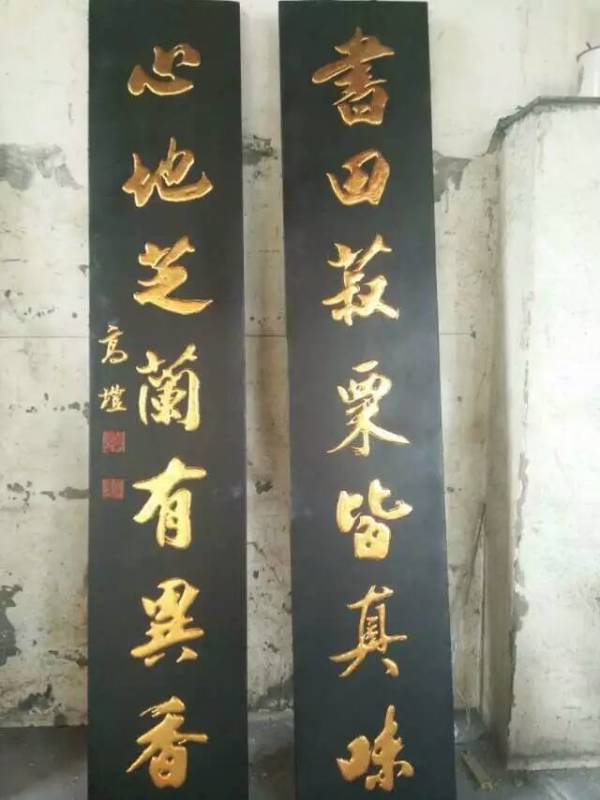 書田菽粟皆真味
心地芝蘭有異香
高塏